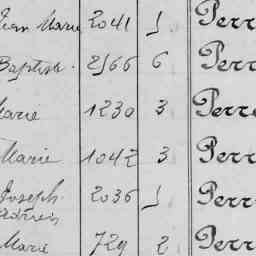 Jean Marie 2041 1 Perr
Baptiste. 2566 6 Perr
Marie 1230 3 Perre
Marie 1042 3 Perr
Joseph 2036 1 Perr
Adrien
Marie 729 2 Perr